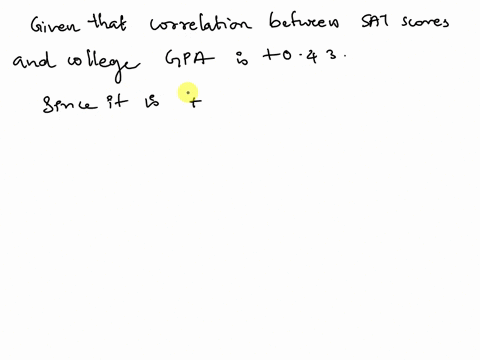 Given that correlation between SAT scores
and college GPA is +0.43.
Since it is +